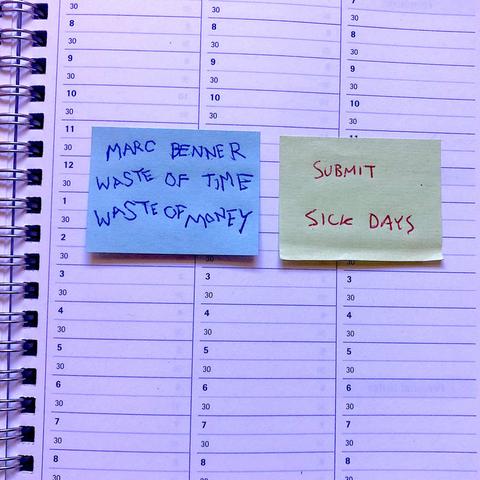 30
8
30
9
30
10
30
11
30
12
30
1
30
2
30
3
30
4
30
5
30
6
30
7
30
8
MARC BENNER
WASTE OF TIME
WASTE OF MONEY
30
8
30
9
30
10
30
11
3
30
4
30
5
30
6
30
7
30
8
SUBMIT
SICK DAYS
7
30
8
30
9
30
10
30
11
3
30
4
30
5
30
6
30
7
30
8